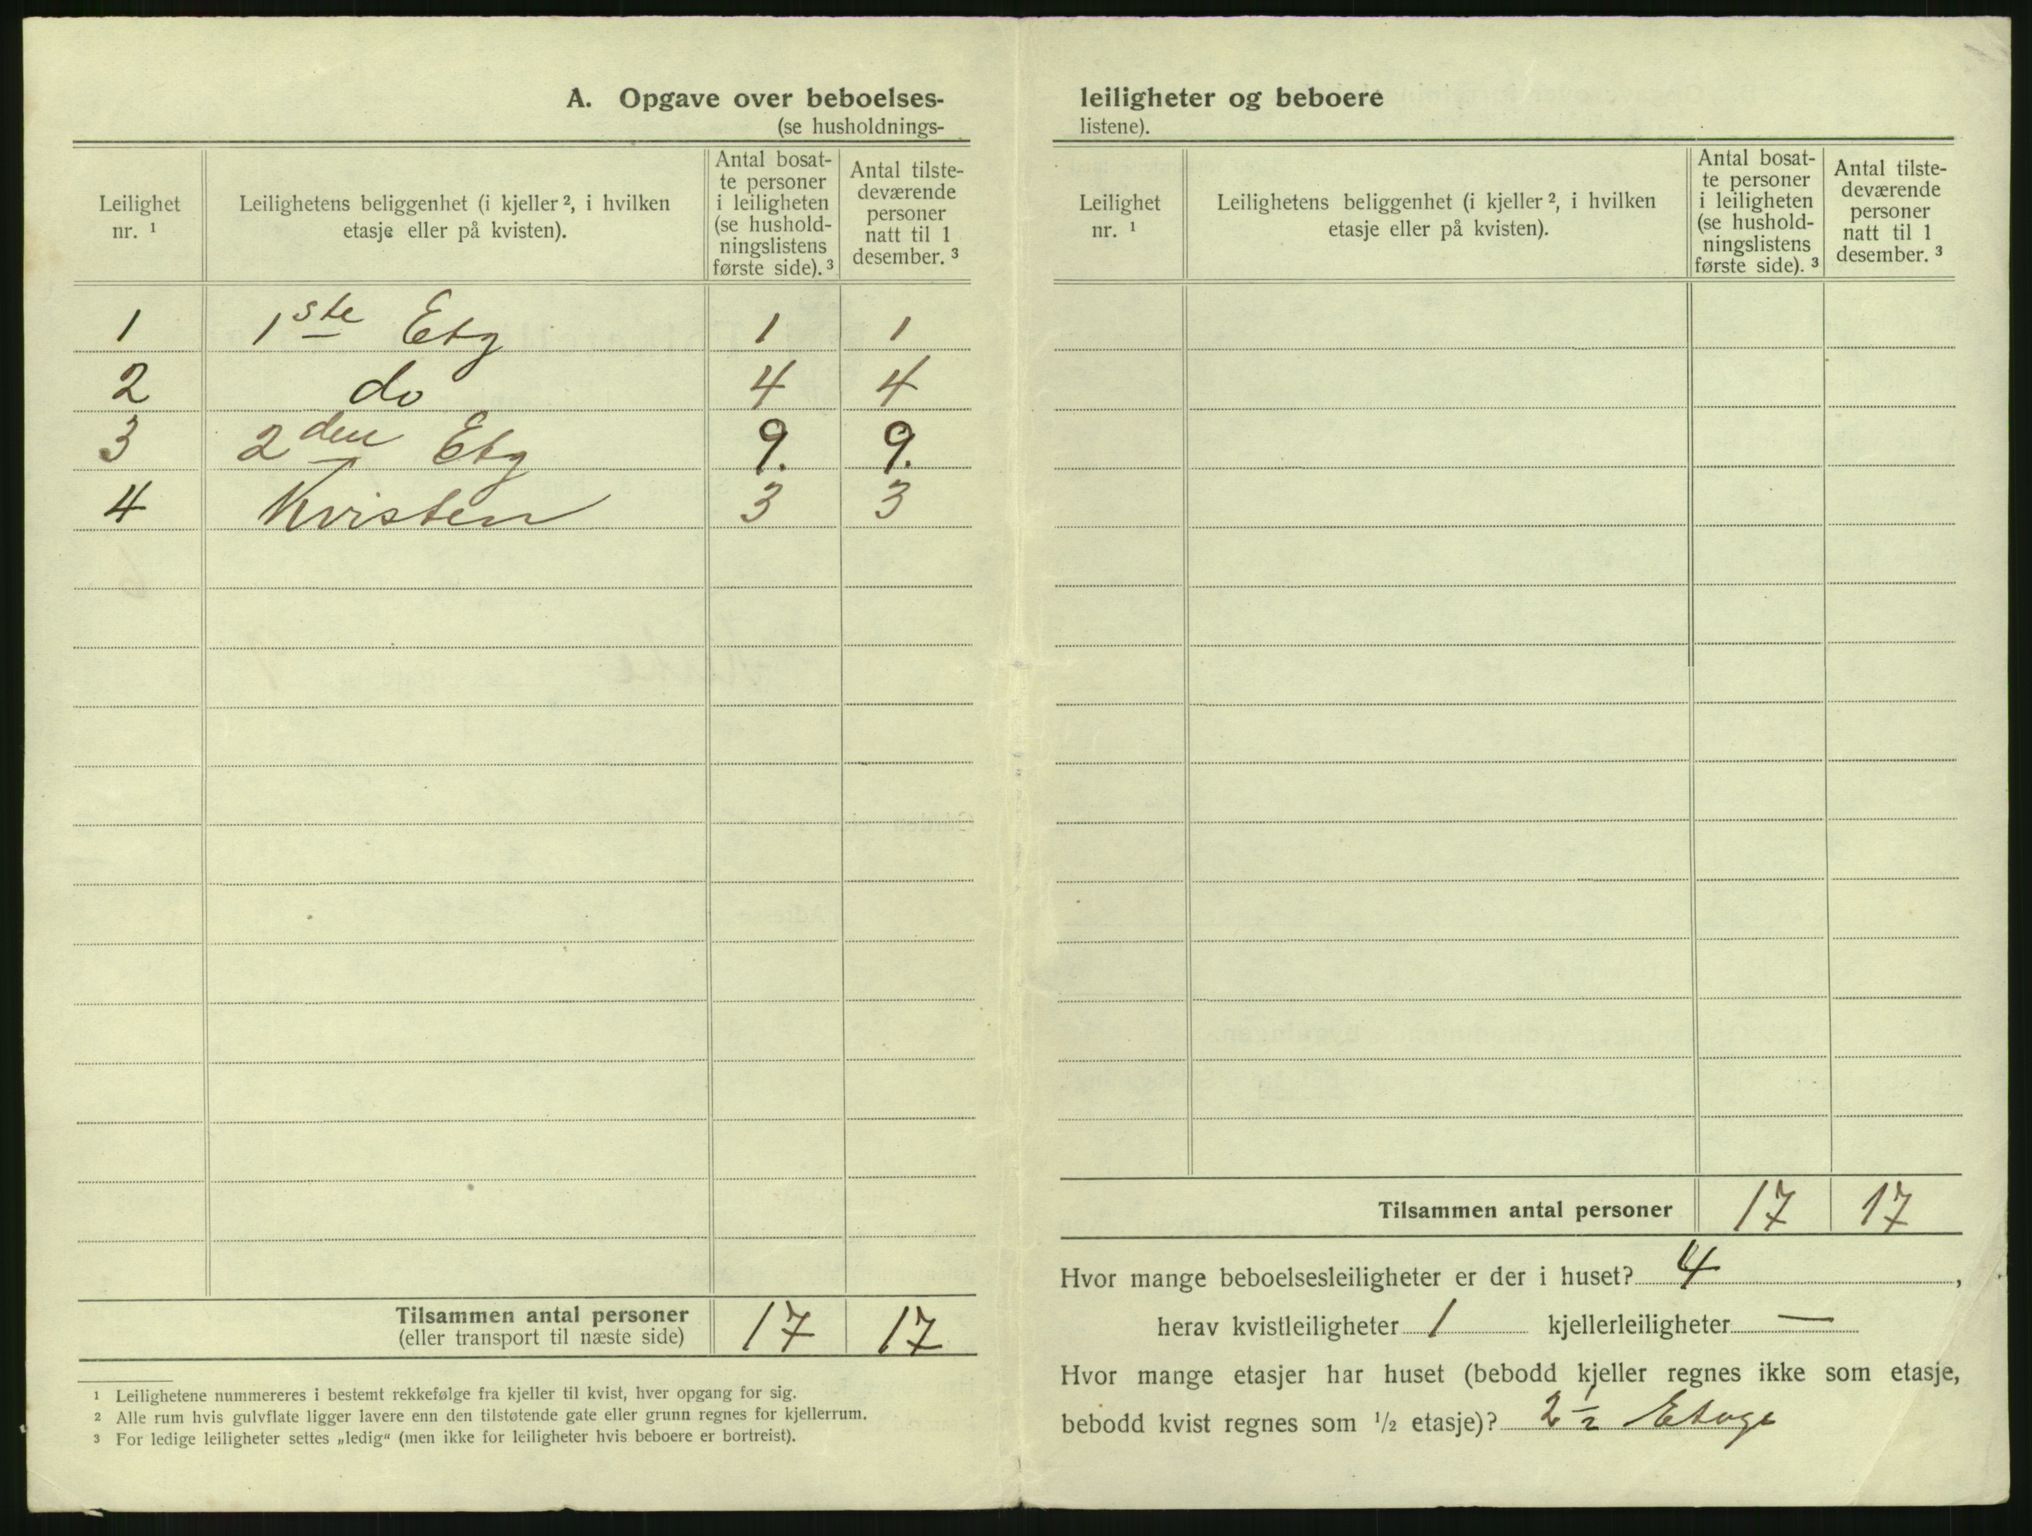 A. Opgave over beboelses-
(se husholdnings-
Leilighet nr. ¹
Leilighetens beliggenhet (i kjeller ², i hvilken etasje eller på kvisten).
Antal bosat-
te personer
i leiligheten
(se hushold-
ningslistens
første side). ³
Antal tilste-
deværende
personer
natt til 1
desember. ³
1 1ste Etg 1 1
2 do 4 4
3 2den Etg 9. 9.
4 Kvisten 3 3
Tilsammen antal personer 17 17
(eller transport til næste side)
¹ Leilighetene nummereres i bestemt rekkefølge fra kjeller til kvist, hver opgang for sig.
² Alle rum hvis gulvflate ligger lavere enn den tilstøtende gate eller grunn regnes for kjellerrum.
³ For ledige leiligheter settes „ledig“ (men ikke for leiligheter hvis beboere er bortreist).
leiligheter og beboere
listene).
Leilighet nr. ¹
Leilighetens beliggenhet (i kjeller ², i hvilken etasje eller på kvisten).
Antal bosat-
te personer
i leiligheten
(se hushold-
ningslistens
første side). ³
Antal tilste-
deværende
personer
natt til 1
desember. ³
Tilsammen antal personer 17 17
Hvor mange beboelsesleiligheter er der i huset? 4,
herav kvistleiligheter 1 kjellerleiligheter —
Hvor mange etasjer har huset (bebodd kjeller regnes ikke som etasje,
bebodd kvist regnes som ½ etasje)? 2½ Etage